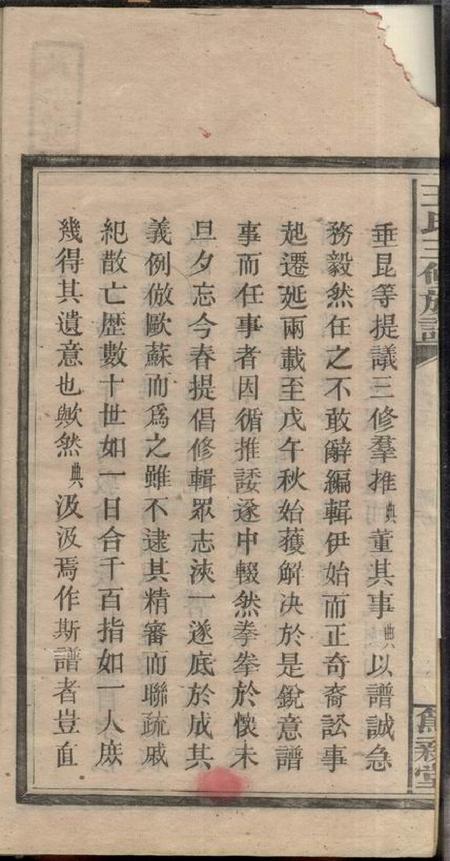 王氏三修族譜
垂昆等提議三修羣推典董其事典以譜誠急
務毅然任之不敢辭編輯伊始而正奇裔訟事
起遷延兩載至戊午秋始獲解决於是銳意譜
事而任事者因循推諉遂中輟然拳拳於懷未
旦夕忘今春提倡修輯眾志浹一遂底於成其
義例倣歐蘇而爲之雖不逮其精審而聯疏戚
紀散亡歴數十世如一日合千百指如一人庶
幾得其遺意也歟然典汲汲焉作斯譜者豈直